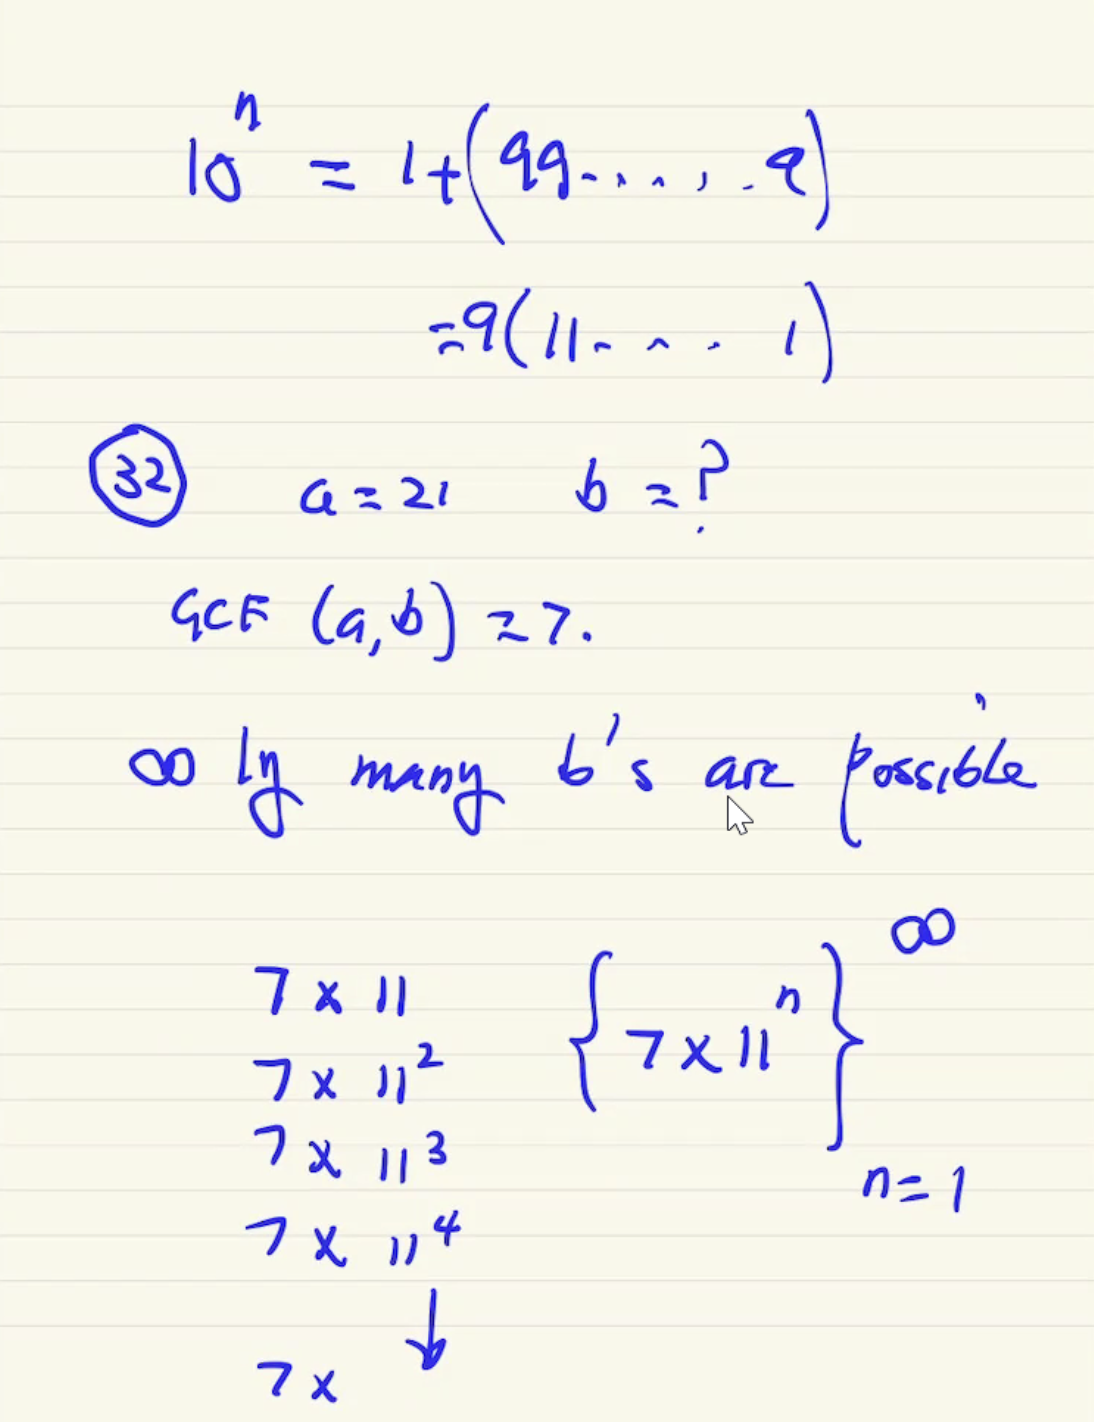 10^n = 1+(99.....9)
=9(11- - - 1)
32 a = 21 b = ?
GCF (a,b) = 7.
∞ly many b's are possible
7 x 11 {7 x 11^n}^∞ n=1
7 x 11^2
7 x 11^3
7 x 11^4
↓
7 x